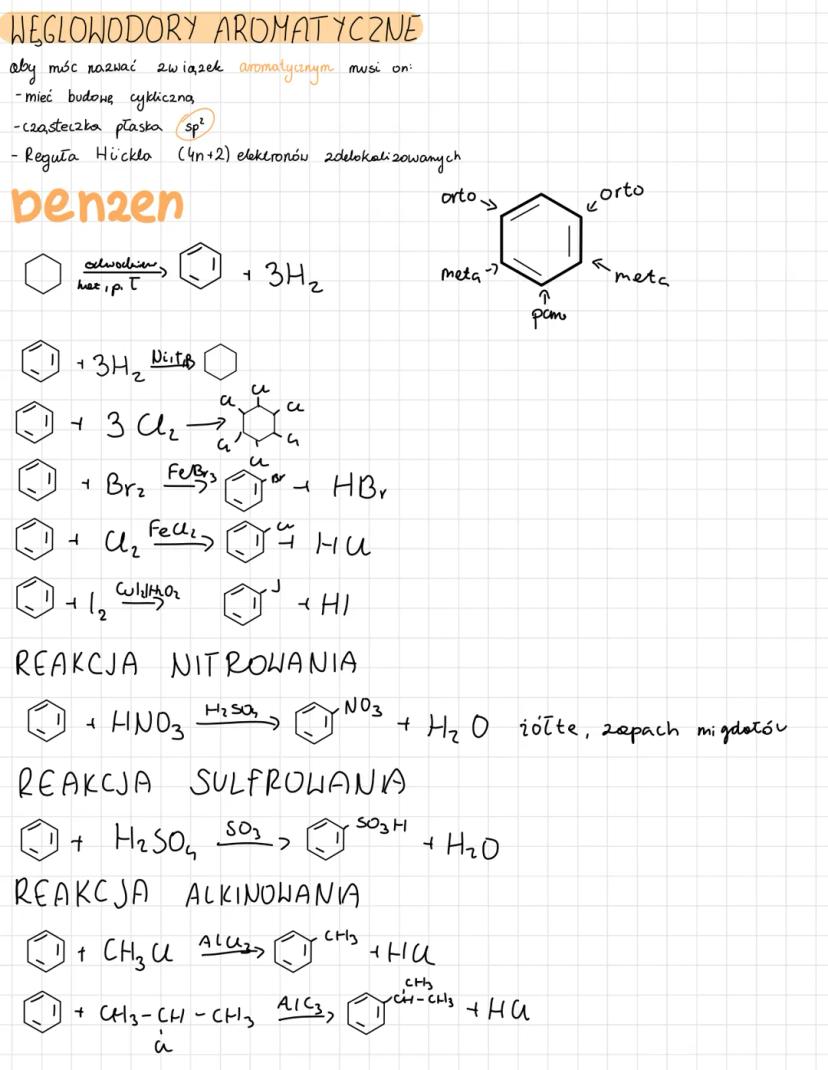 WĘGLOWODORY AROMATYCZNE
aby móc nazwać związek aromatycznym musi on:
- mieć budowę cykliczną
- cząsteczka płaska sp²
- Reguła Hückla (4n+2) elektronów zdelokalizowanych
benzen
orto orto
meta meta
para
+ 3H₂
+ 3H₂ Ni, t, p
+ 3 Cl₂ → Cl Cl Cl Cl Cl Cl
+ Br₂ FeBr₃ Br + HBr
+ Cl₂ FeCl₂ Cl + HCl
+ I₂ J + HI
REAKCJA NITROWANIA
+ HNO₃ H₂SO₄ NO₃ + H₂O żółte, zapach migdałów
REAKCJA SULFROWANIA
+ H₂SO₄ SO₃ SO₃H + H₂O
REAKCJA ALKINOWANIA
+ CH₃Cl AlCl₃ CH₃ + HCl
+ CH₃-CH-CH₃ AlC₃ CH-CH₃ CH₃ + HCl
Cl